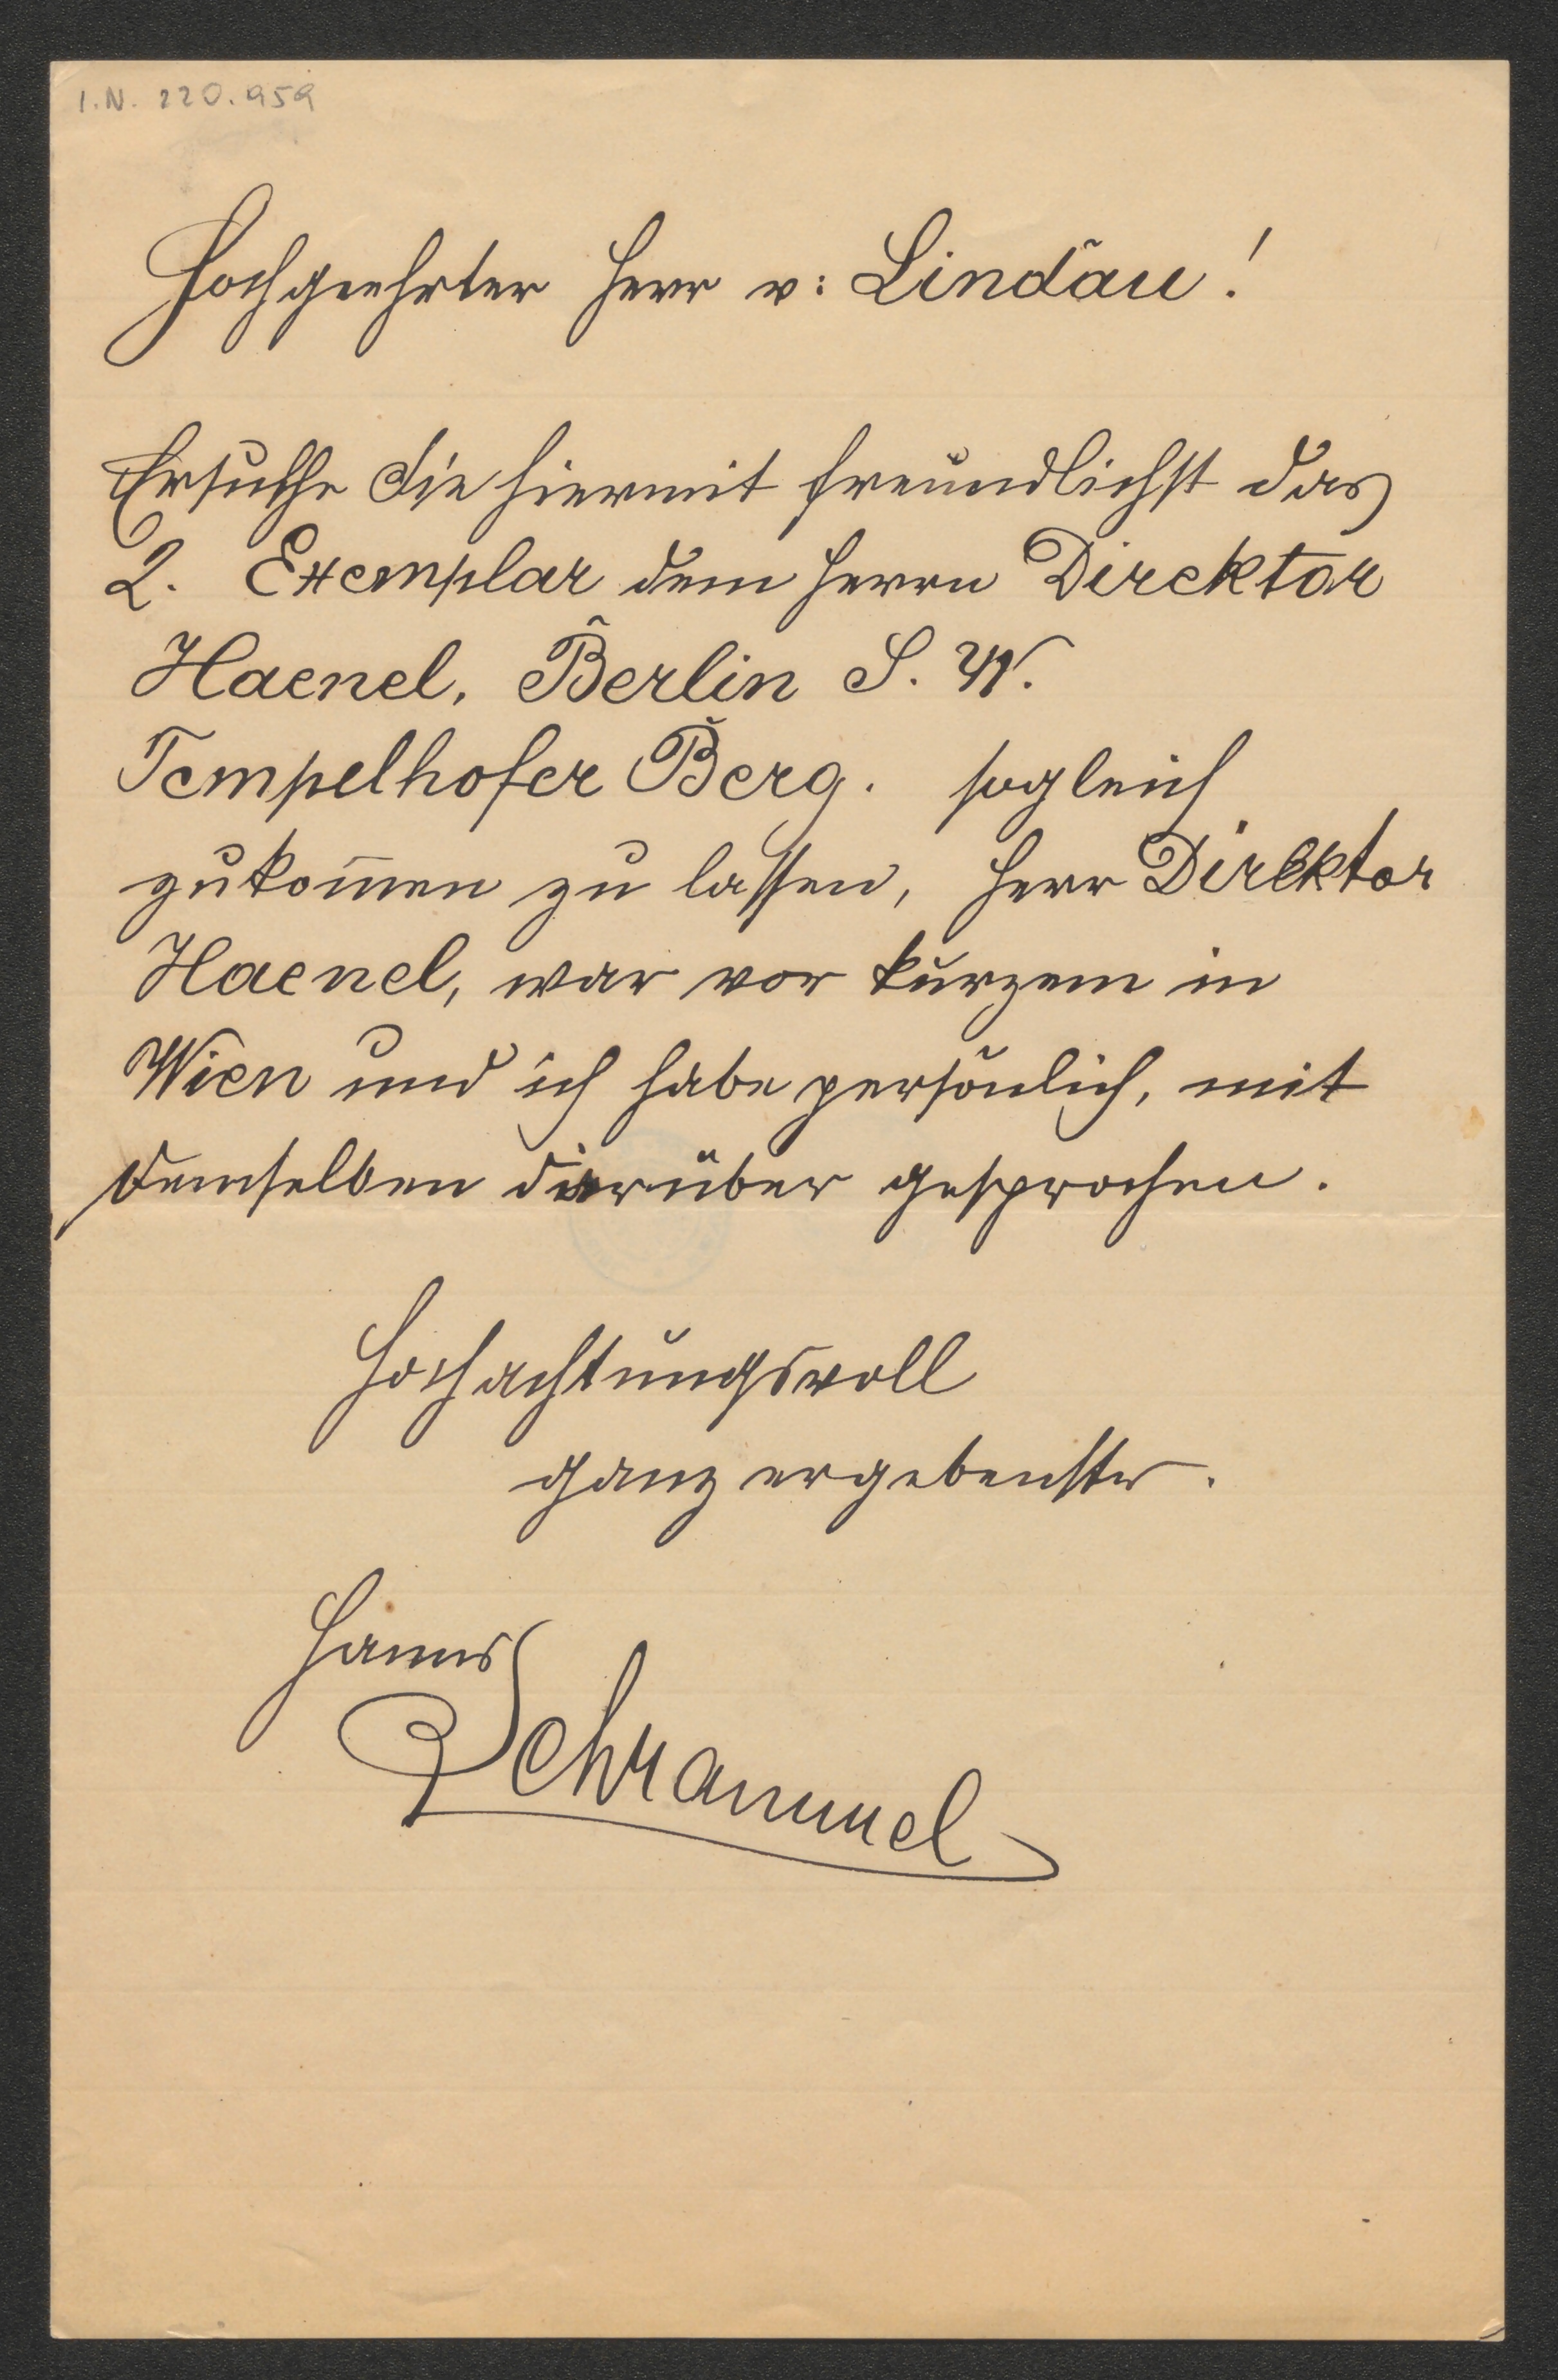 I.N. 220.959
Hochgeehrter Herr v: Lindau!
Ersuche Sie hiermit freundlichst das
2. Exemplar dem Herrn Direktor
Haenel, Berlin S. W.
Tempelhofer Berg. sogleich
zukom̄en zu lassen, Herr Direktor
Haenel, war vor kurzem in
Wien und ich habe persönlich, mit
demselben darüber gesprochen.
Hochachtungsvoll
ganz ergebenster.
Hanns
Schrammel